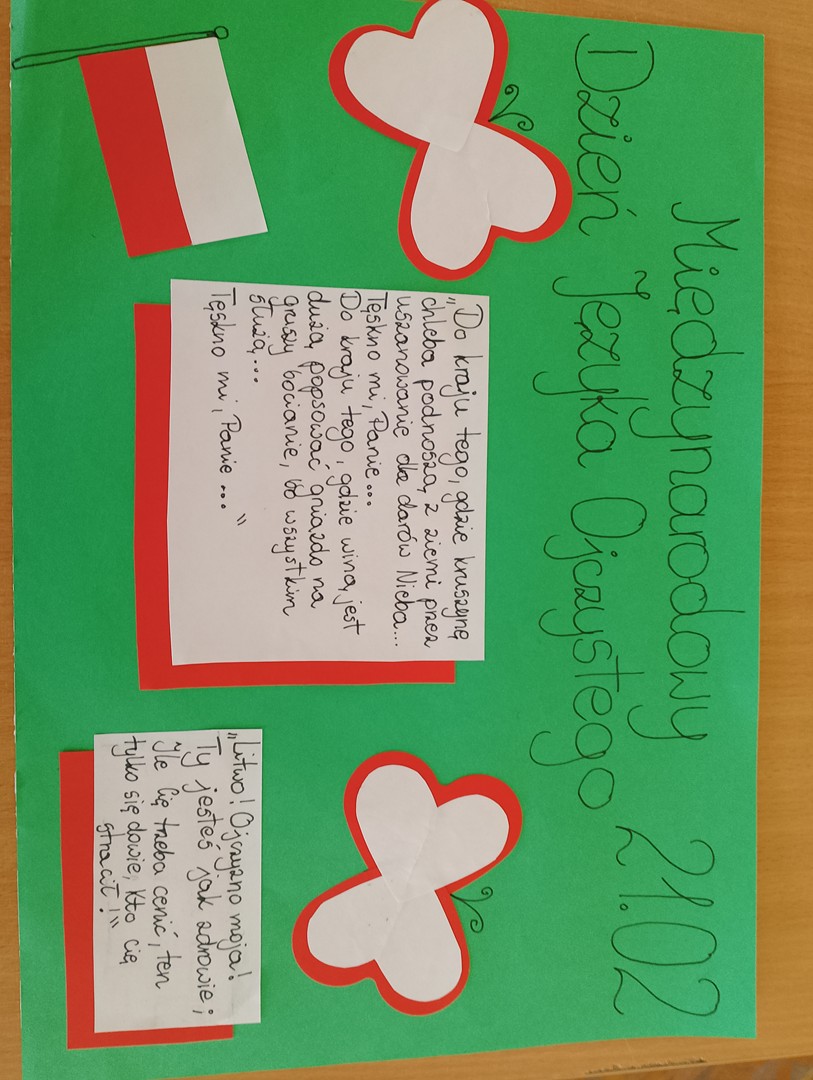 Międzynarodowy
Dzień Języka Ojczystego 21.02
„Do kraju tego, gdzie kruszynę
chleba podnoszą z ziemi przez
uszanowanie dla darów Nieba...
Tęskno mi, Panie...
Do kraju tego, gdzie winą jest
dużą popsować gniazdo na
gruszy bocianie, bo wszystkim
służą...
Tęskno mi, Panie..."
„Litwo! Ojczyzno moja!
Ty jesteś jak zdrowie;
Ile cię trzeba cenić, ten
tylko się dowie, kto cię
stracił!"